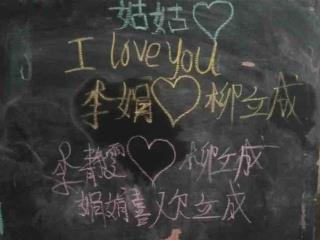 姑姑♡
I love you
李娟♡柳立成
李静雯♡柳立成
娟娟喜欢立成